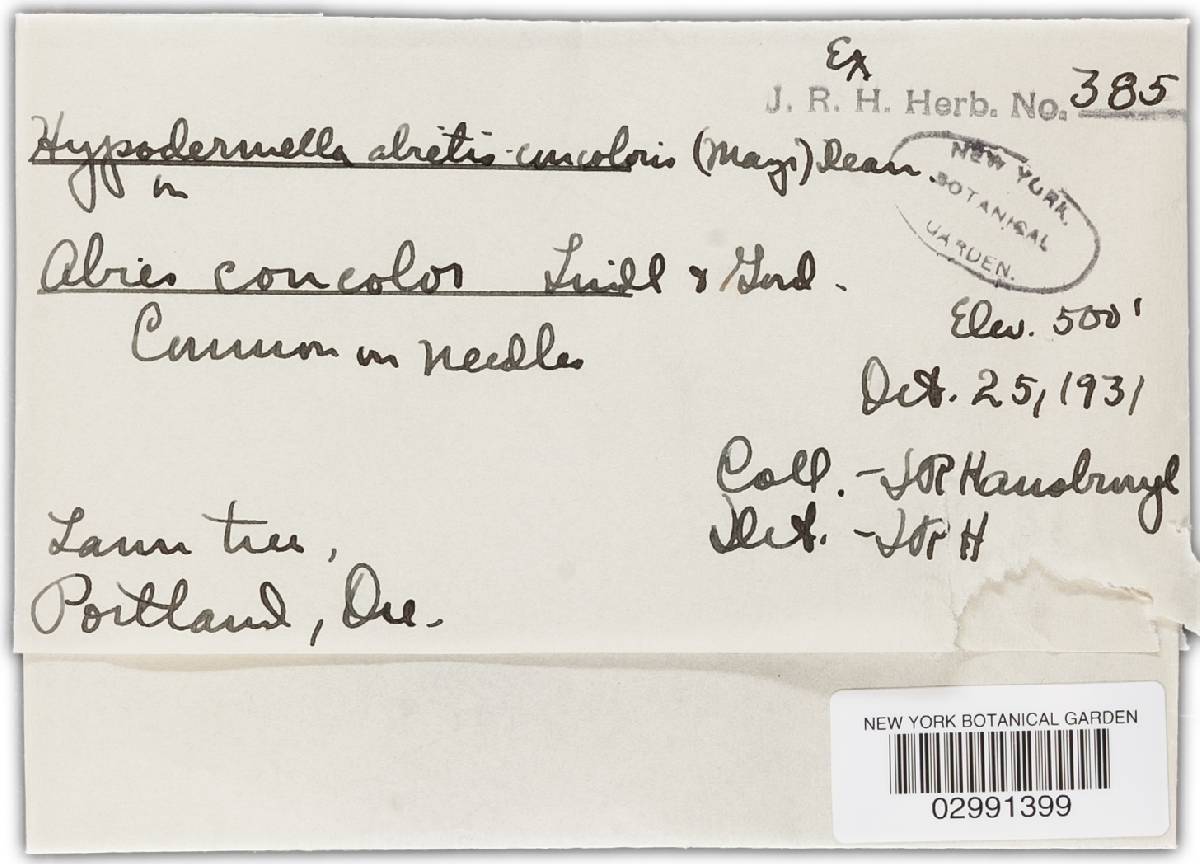 Ex
J. R. H. Herb. No. 385
Hypodermella abietis-concoloris (Mayr) Dearn.
on
NEW YORK
BOTANICAL
GARDEN.
Abies concolor Lindl & Gord.
Elev. 500'
Common on needles
Oct. 25, 1931
Coll. - JR Hansbrough
Lawn tree,
Det. - JRH
Portland, Ore.
NEW YORK BOTANICAL GARDEN
02991399